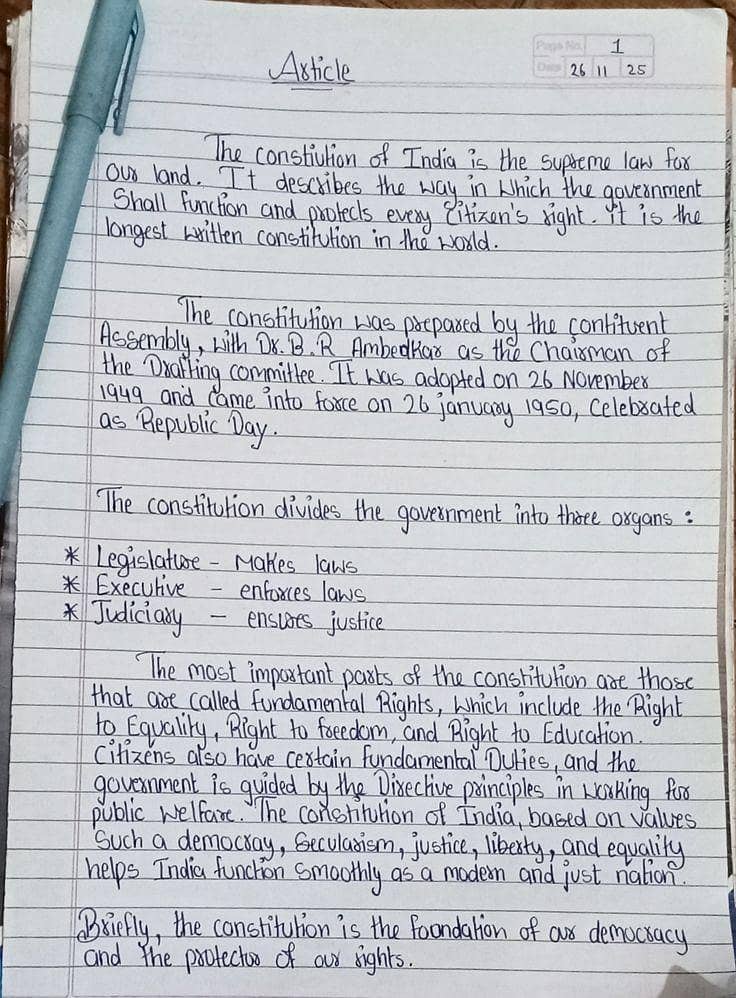 Page No. 1
Date 26 11 25
Article
The constiution of India is the supreme law for
our land. It describes the way in which the government
Shall function and protects every Citizen's right. it is the
longest written constitution in the world.
The constitution was prepared by the contituent
Assembly, with Dr. B. R Ambedkar as the Chairman of
the Drafting committee. It was adopted on 26 November
1949 and came into force on 26 january 1950, Celebrated
as Republic Day.
The constitution divides the government into three organs :
* Legislature - Makes laws
* Executive - enforces laws
* Judiciary - ensures justice
The most important parts of the constitution are those
that are called Fundamental Rights, which include the Right
to Equality, Right to freedom, and Right to Education.
Citizens also have certain Fundamental Duties, and the
government is guided by the Directive principles in working for
public welfare. The constitution of India, based on values
Such a democray, Secularism, justice, liberty, and equality
helps India function Smoothly as a modern and just nation.
Briefly, the constitution is the foondation of our democracy
and the protector of our rights.